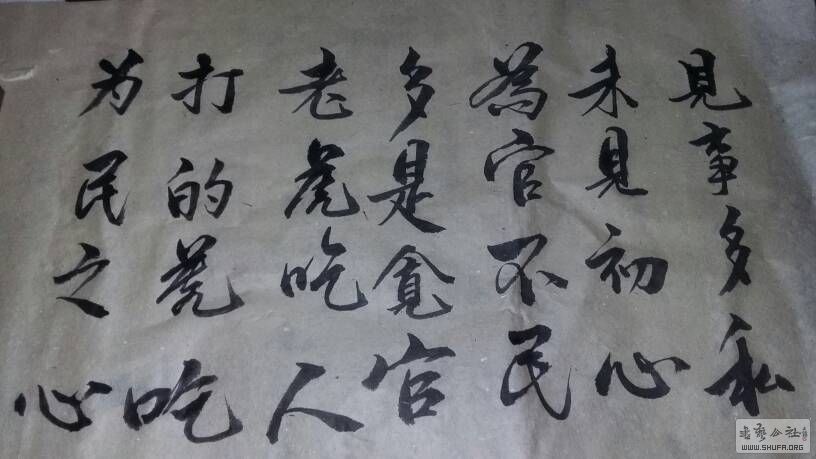 見事多私
未見初心
為官不民
多是貪官
老虎吃人
打的虎吃
为民之心
書藝公社
WWW.SHUFA.ORG